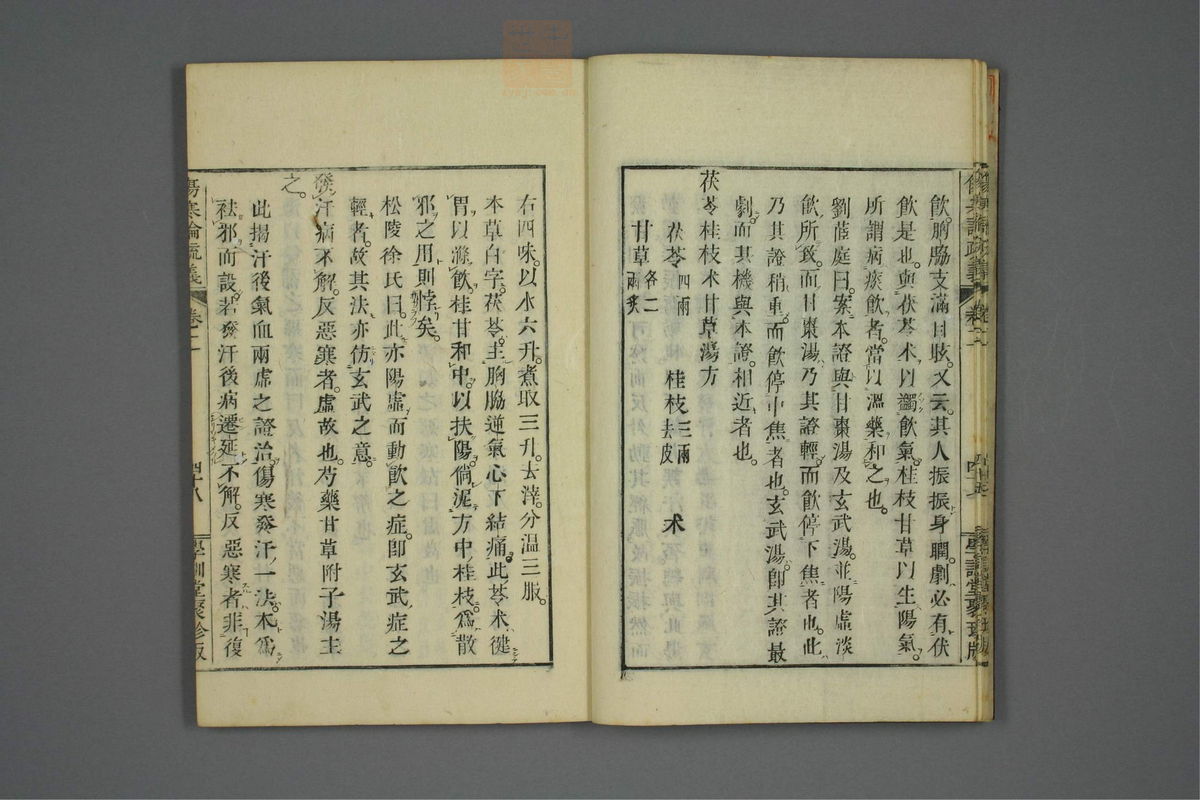 飲。胷脇支滿目眩。又云。其人振振身瞤劇。必有伏
飲是也。與茯苓术以蠲飲氣。桂枝甘草以生陽氣。
所謂病痰飲者。當以溫藥和之也。
劉茝庭曰。案本證與甘棗湯及玄武湯。並陽虛淡
飲所致。而甘棗湯。乃其證輕。而飲停下焦者也。此
乃其證稍重。而飲停中焦者也。玄武湯。卽其證最
劇。而其機與本證。相近者也。
茯苓桂枝术甘草湯方
茯苓四兩 桂枝三兩去皮 术
甘草各二兩炙
右四味。以水六升。煮取三升。去滓。分溫三服。
本草白字。茯苓。主胸脇逆氣心下結痛。此苓术、健
胃以滌飲。桂甘和中。以扶陽。倘泥方中桂枝。爲散
邪之用。則悖矣。
松陵徐氏曰。此亦陽虛而動飲之症。卽玄武症之
輕者。故其法亦仿玄武之意。
發汗病不解。反惡寒者。虛故也。芍藥甘草附子湯主
之。
此揭汗後氣血兩虛之證治。傷寒發汗一法。本爲
祛邪而設。若發汗後病遷延不解。反惡寒者。非復
傷寒論疏義
卷二
四十八
學訓堂聚珍版